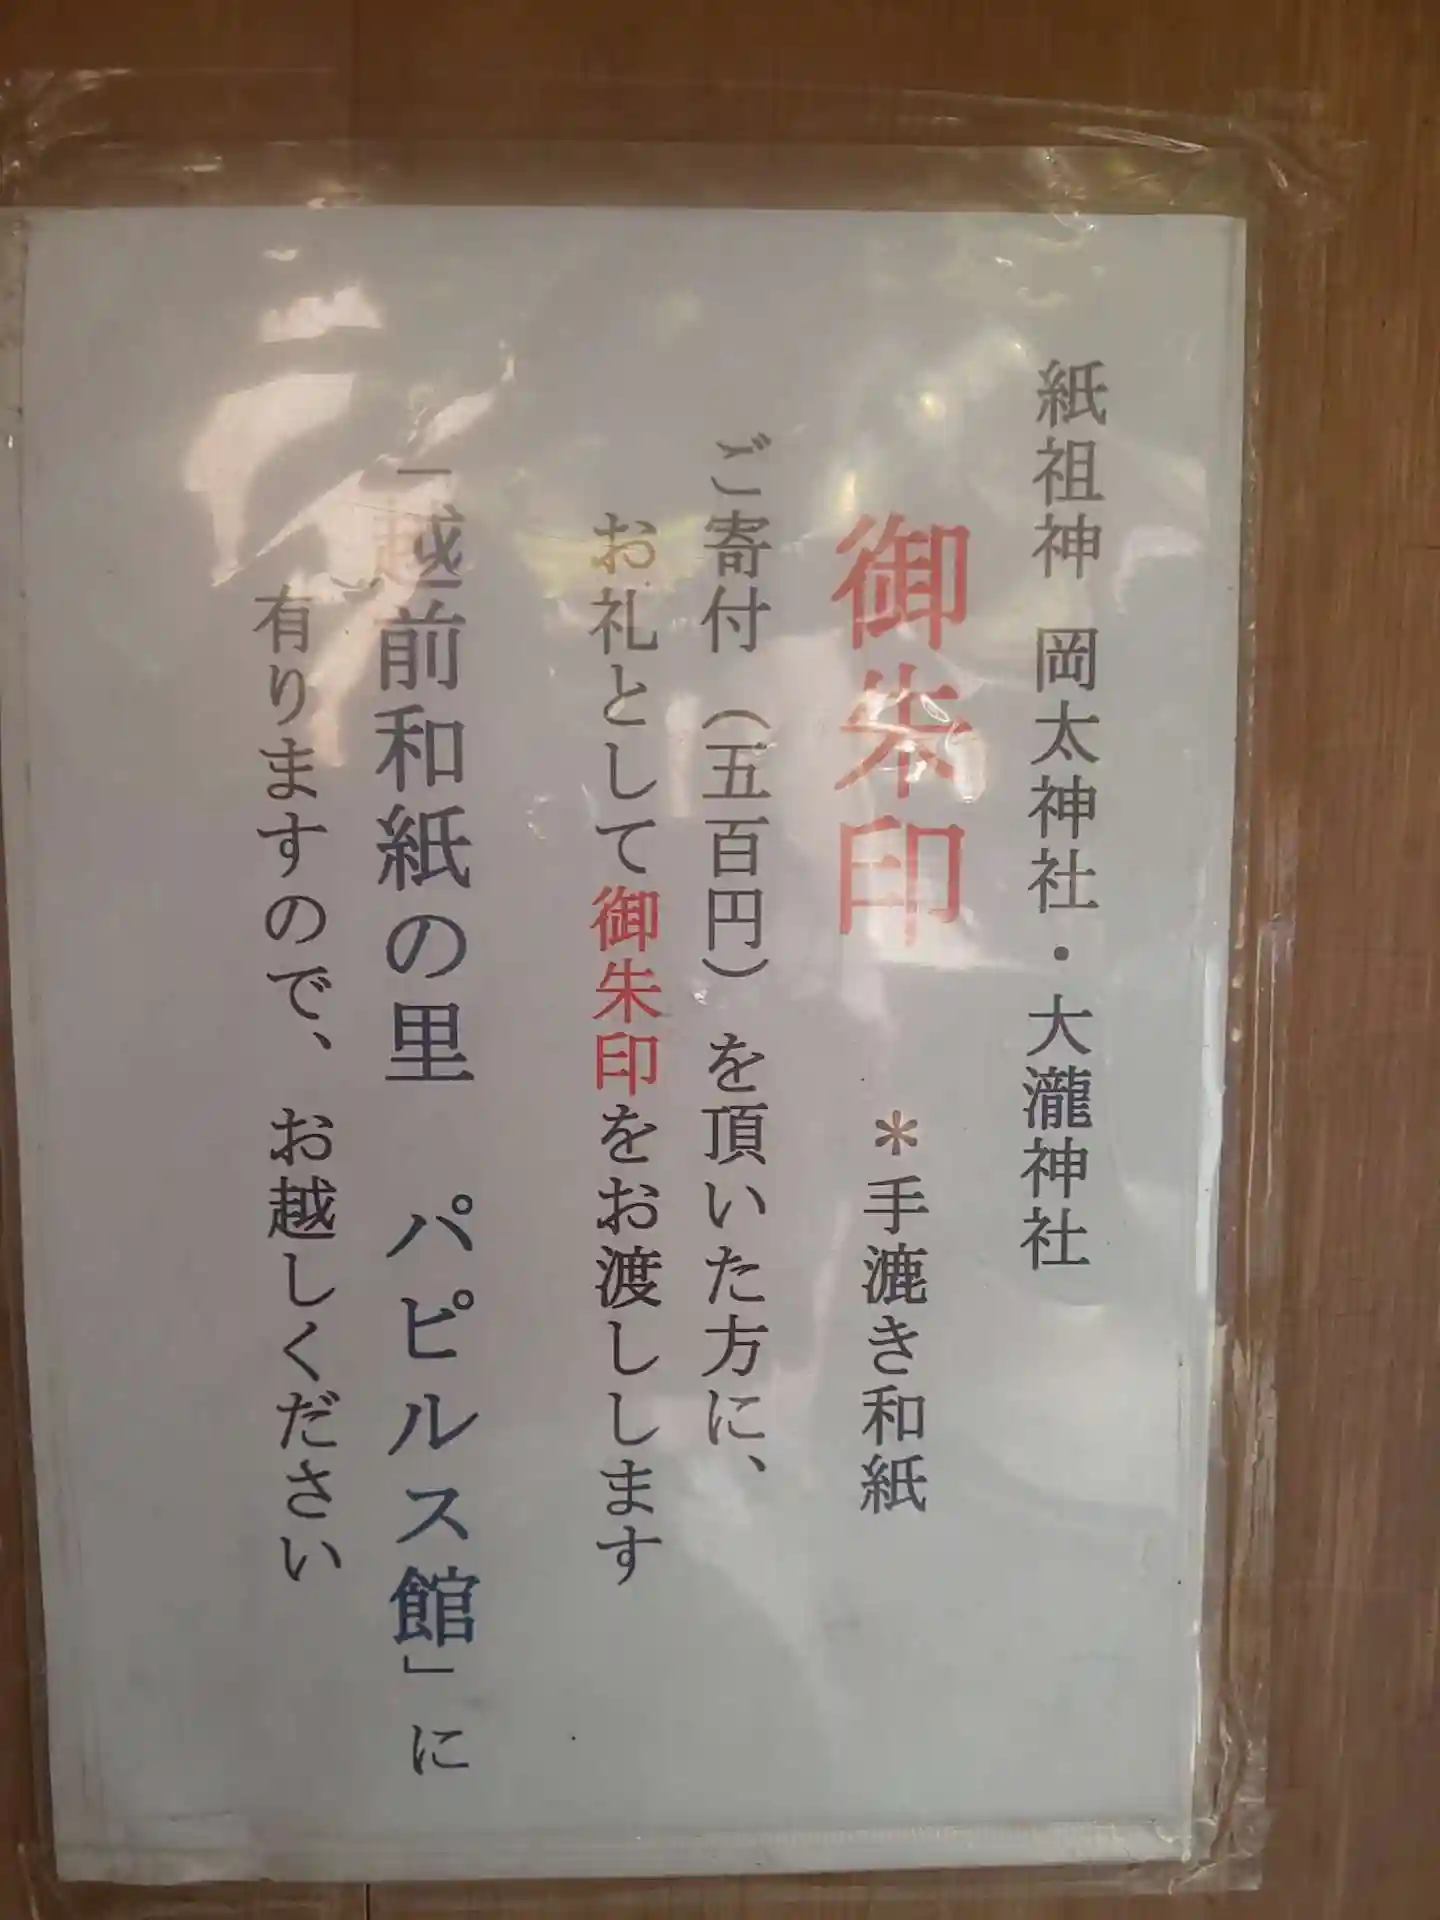 紙祖神 岡太神社・大瀧神社
御朱印 *手漉き和紙
ご寄付(五百円)を頂いた方に、
お礼として御朱印をお渡しします
「越前和紙の里 パピルス館」に
有りますので、お越しください